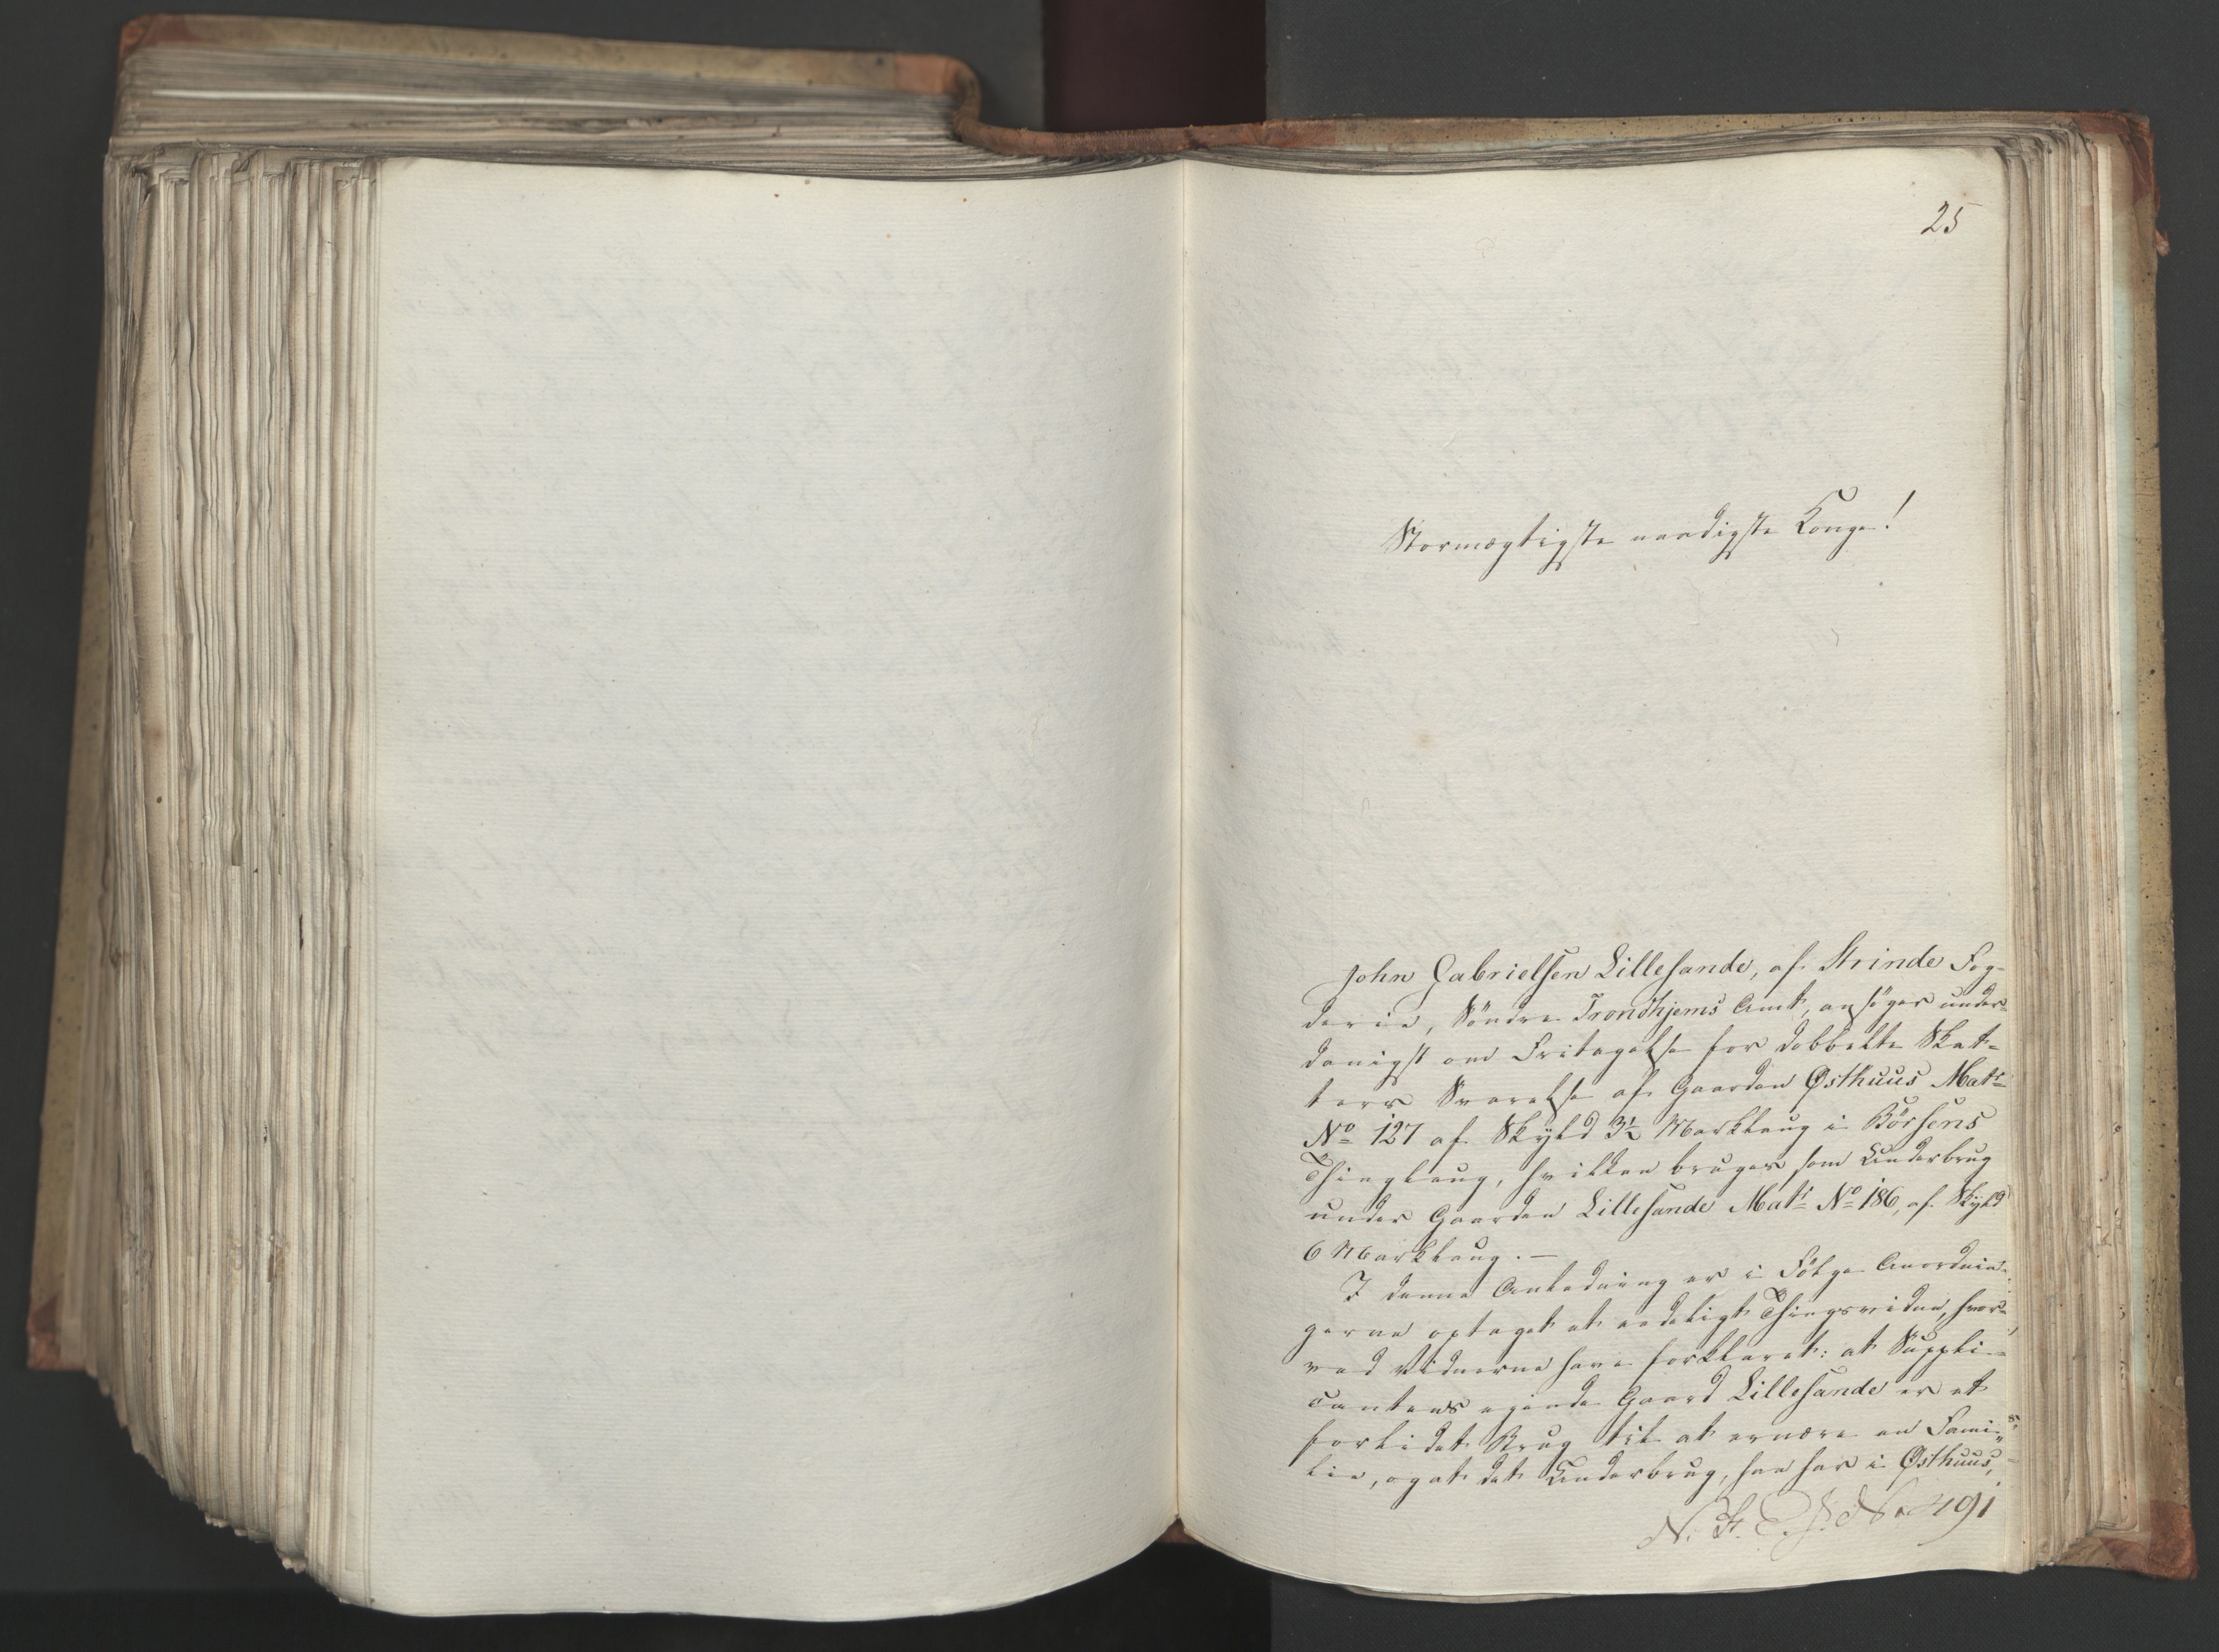 25
Stormægtigste naadigste Konge!
John Gabrielsen Lillesande, af Strinde Fog-
derie, Söndre Trondhjems Amt, ansöger under-
danigst om Fritagelse for dobbelte Skat-
ters Svarelse af Gaarden Østhuus Matr
No 127 af Skyld 3½ Marklaug i Börsens
Thinglaug, hvilken bruges som Underbrug
under Gaarden Lillesande Matr No 186, af Skyld
6 Marklaug. —
I denne Anledning er i Fölge Anordnin-
gerne optaget et lovligt Thingsvidne, hvor-
ved Vidnerne have forklaret: at Suppli-
cantens eiende Gaard Lillesande er et
forlidet Brug til at ernære en Fami-
lie, og at det Underbrug, han har i Østhuus,
No 491